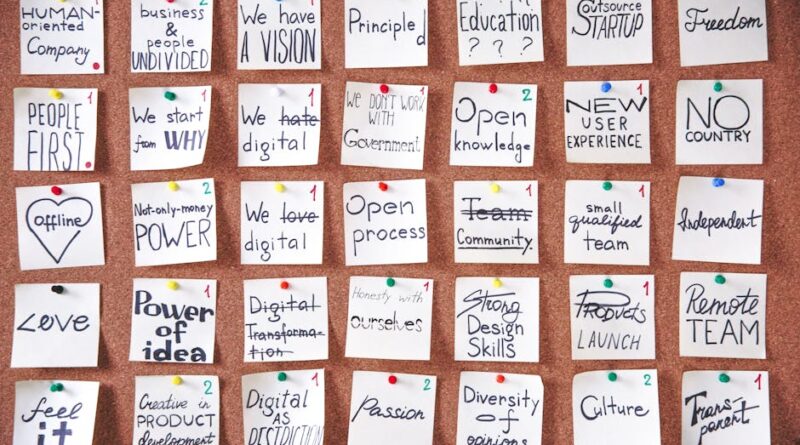 HUMAN-
oriented
Company
business
&
people
UNDIVIDED
2
We have
a VISION
Principle
d
Education
? ? ?
Outsource
STARTUP
Freedom
PEOPLE
FIRST
1
We start
from WHY
1
We hate
digital
1
We DON'T WORK
WITH
Government
1
Open
knowledge
2
NEW
USER
EXPERIENCE
1
NO
COUNTRY
offline
Not-only-money
POWER
2
We love
digital
1
Open
process
Team
Community
1
small
qualified
team
1
Independent
Love
Power
of
idea
1
Digital
Transforma-
tion
Honesty with
ourselves
1
Strong
Design
Skills
Products
LAUNCH
1
Remote
TEAM
feel
it
Creative in
PRODUCT
development
2
Digital
AS
1
Passion
2
Diversity
of
opinions
Culture
2
Trans-
parent
1